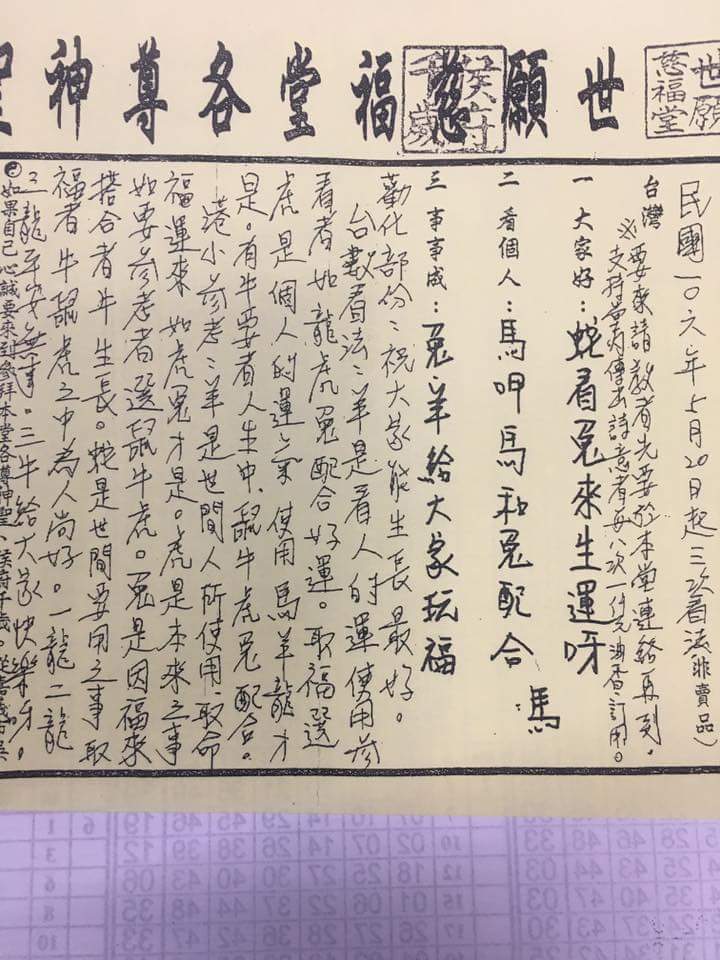 世願慈福堂各尊神聖
世願
慈福堂
侯府
千歲
民國一〇六年5月20日起三次看法(非賣品)
台灣 ※要來請教者先要於本堂連絡再到。
支持當月傳出詩意者每八次一仟元油香訂用。
一 大家好:蛇看兔來生運呀
二 看個人:馬呷馬和兔配合
馬
三 事事成:兔羊給大家玩福
勸化部份:祝大家能生長最好。
台數看法:羊是看人的運使用參
看者如龍虎兔配合好運。取福選
虎是個人的運氣使用馬羊龍才
是。有牛要者人生中、鼠牛虎兔配合。
港小參考:羊是世間人所使用、取命
福運來如虎兔才是。虎是本來之事
如要參考者選鼠牛虎。兔是因福來
搭合者牛生長。蛇是世間要用之事取
福者牛鼠虎之中為人尚好。一龍二龍
三龍平安無事。三牛給大家快樂呀。
如果自己心誠要來到參拜本堂各尊神聖、侯府千歲。